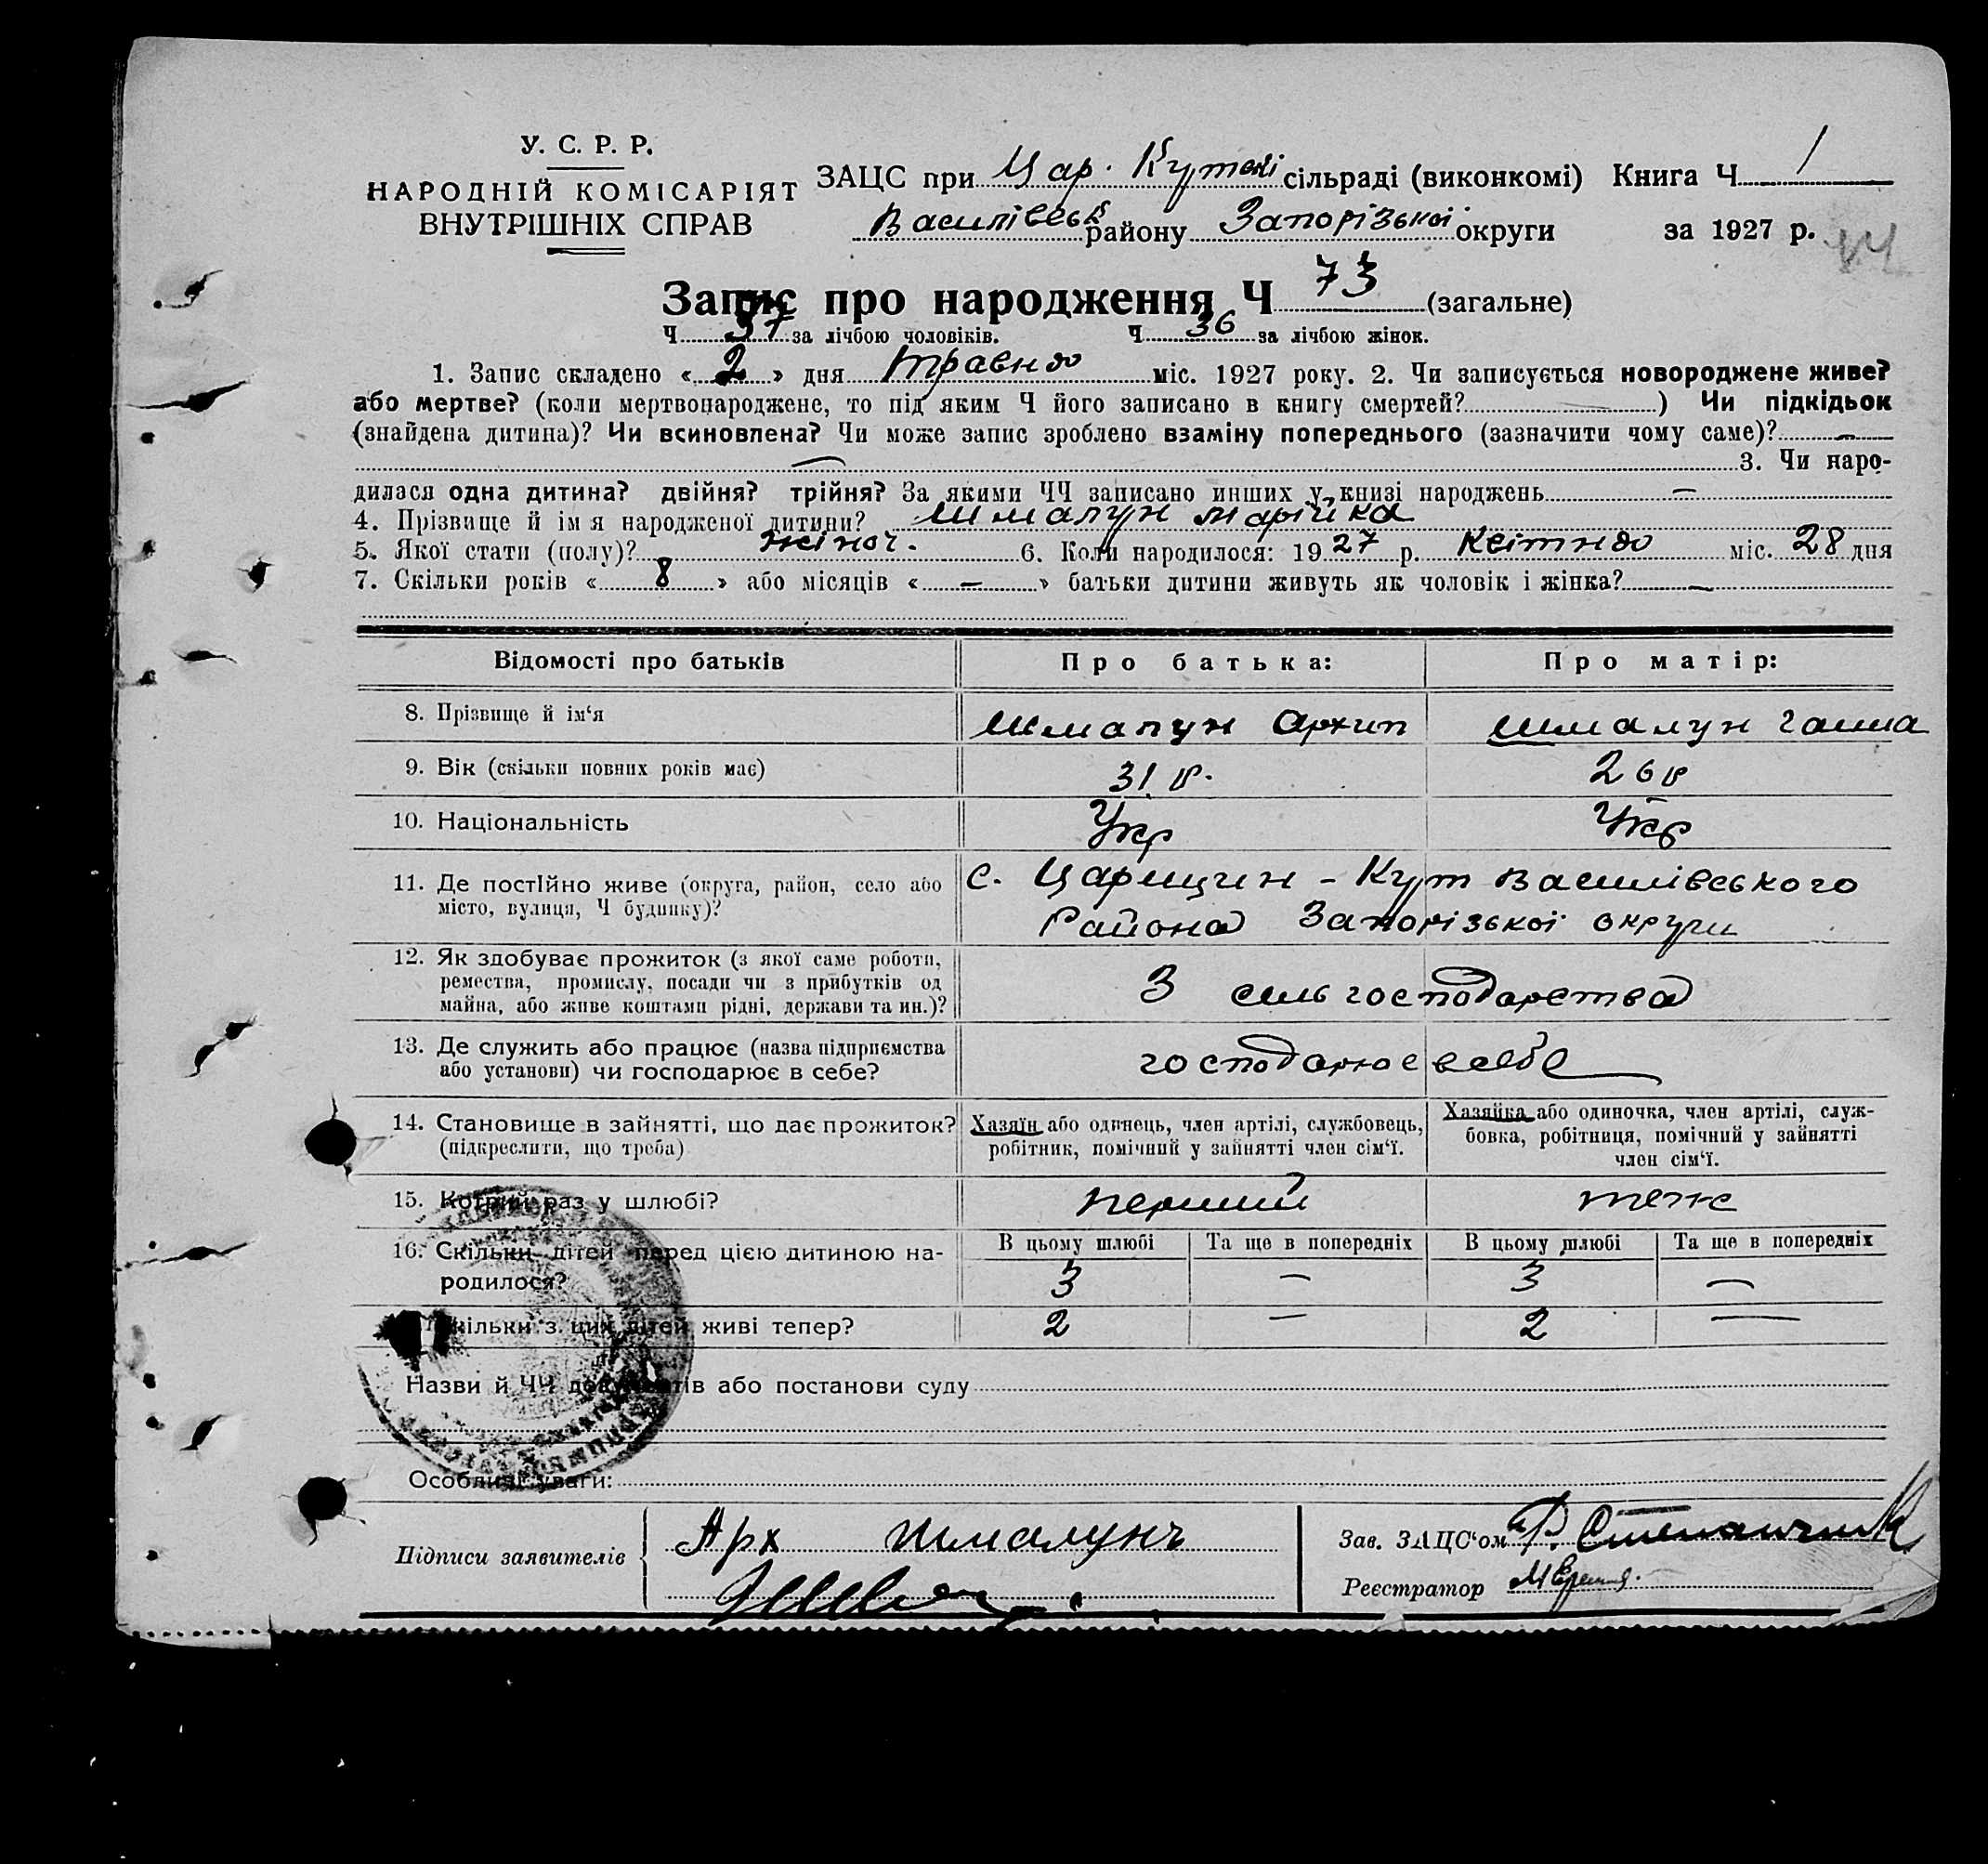 У. С. Р. Р.
НАРОДНІЙ КОМІСАРІЯТ
ВНУТРІШНІХ СПРАВ
ЗАЦС при Цар. Кутській сільраді (виконкомі) Книга Ч 1
Василівськ району Запорізької округи за 1927 р.
Запис про народження Ч 73 (загальне)
Ч 37 за лічбою чоловіків. Ч 36 за лічбою жінок.
1. Запис складено « 2 » дня травня міс. 1927 року. 2. Чи записується новороджене живе?
або мертве? (коли мертвонароджене, то під яким Ч його записано в книгу смертей? —) Чи підкідьок
(знайдена дитина)? Чи всиновлена? Чи може запис зроблено взаміну попереднього (зазначити чому саме)? —
— 3. Чи наро-
дилася одна дитина? двійня? трійня? За якими ЧЧ записано инших у книзі народжень —
4. Прізвище й ім я народженої дитини? Шмалун Марійка
5. Якої стати (полу)? жіноч. 6. Коли народилося: 1927 р. Квітня міс. 28 дня
7. Скільки років « 8 » або місяців « — » батьки дитини живуть як чоловік і жінка? —
Відомості про батьків Про батька: Про матір:
8. Прізвище й ім‘я Шмалун Архип Шмалун Ганна
9. Вік (скільки повних років має) 31 р. 26 р
10. Національність Укр Укр
11. Де постійно живе (округа, район, село або с. Царицин - Кут Василівського
місто, вулиця, Ч будинку)? Района Запорізької округи
12. Як здобуває прожиток (з якої саме роботи,
ремества, промислу, посади чи з прибутків од З сель господарства
майна, або живе коштами рідні, держави та ин.)?
13. Де служить або працює (назва підприємства
або установи) чи господарює в себе? господарює в себе
14. Становище в зайнятті, що дає прожиток? Хазяїн або одинець, член артілі, службовець, Хазяйка або одиночка, член артілі, служ-
(підкреслити, що треба) робітник, помічний у зайнятті член сім‘ї. бовка, робітниця, помічний у зайнятті
член сім‘ї.
15. Котрий раз у шлюбі? перший теж
16. Скільки дітей перед цією дитиною на- В цьому шлюбі Та ще в попередніх В цьому шлюбі Та ще в попередніх
родилося? 3 — 3 —
Скільки з цих дітей живі тепер? 2 — 2 —
Назви й ЧЧ документів або постанови суду
Особливі уваги:
Підписи заявителів Арх Шмалунъ Зав. ЗАЦС‘ом
Реєстратор